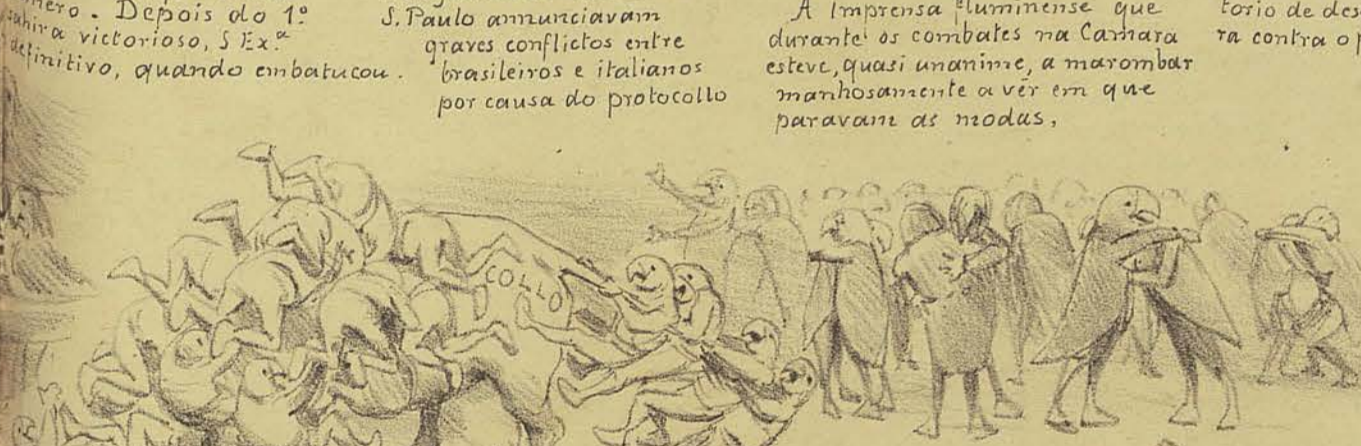 Depois do 1º
victorioso, S Ex.ª
quando embatucou.
S. Paulo annunciavam
graves conflictos entre
brasileiros e italianos
por causa do protocollo
A Imprensa Fluminense que
durante os combates na Camara
esteve, quasi unanime, a marombar
manhosamente a vêr em que
paravam as modas,
torio de des
ra contra o p
COLLO